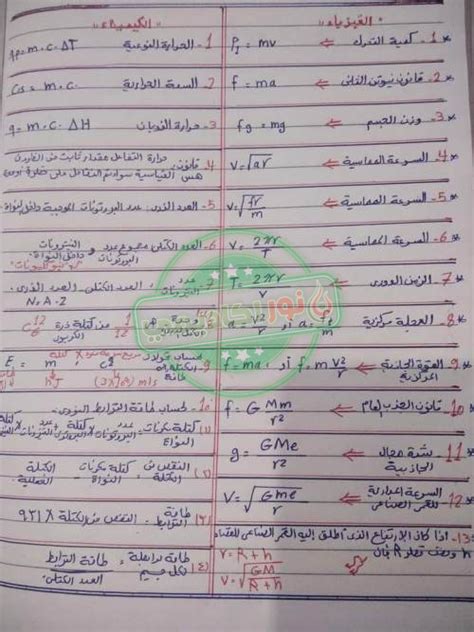 الفيزياء
1- كمية التحرك ⇐ P = mv
2- قانون نيوتن الثاني ⇐ f = ma
3- وزن الجسم ⇐ fg = mg
4- السرعة المماسية ⇐ v = √ar
5- السرعة المماسية ⇐ v = √(fr/m)
6- السرعة المماسية ⇐ v = 2πr/T
7- الزمن الدوري ⇐ T = 2πr/v
8- العجلة المركزية ⇐ a = v²/r أو a = f/m
9- القوة الجاذبة المركزية ⇐ f = ma أو f = m v²/r
10- قانون الجذب العام ⇐ f = G Mm/r²
11- شدة مجال الجاذبية ⇐ g = GMe/r²
12- السرعة المدارية للقمر الصناعي ⇐ V = √(GMe/r)
13- إذا كان الارتفاع الذى أطلق إليه القمر الصناعى للفضاء
h ونصف قطر R فإن
r = R + h
v = √(GM/R+h)
الكيمياء
1- الحرارة النوعية qp = m.c.ΔT
2- السعة الحرارية Cs = m.c.
3- حرارة الذوبان q = m.c. ΔH
4- قانون هس حرارة التفاعل مقدار ثابت فى الظروف
القياسية سواء تم التفاعل على خطوة أو
5- العدد الذرى: عدد البروتونات الموجبة داخل النواة
6- العدد الكتلى مجموع عدد البروتونات والنيترونات
داخل النواة
7- عدد النيترونات = العدد الكتلى - العدد الذرى
N = A - Z
8- 1/12 من كتلة ذرة الكربون C 12 6
9- لحساب
E = m C²
طاقة كتلة (3×10⁸)
10- لحساب طاقة الترابط النووى
(1) كتلة مكونات النواة
(2) النقص فى الكتلة = كتلة مكونات النواة - الكتلة الفعلية
(3) طاقة الترابط = النقص فى الكتلة × 931
(4) طاقة الترابط لكل جسيم = طاقة الترابط / العدد الكتلى